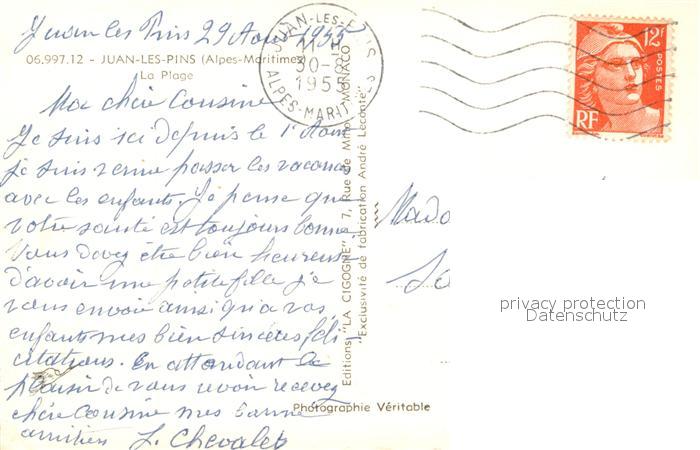 Juan les Pins 29 Aout 1955
06.997.12 - JUAN-LES-PINS (Alpes-Maritimes)
La Plage
Ma chère Cousine
Je suis ici depuis le 1er Aout
je suis venue passer les vacances
avec les enfants. Je pense que
votre santé est toujours bonne
Vous devez être bien heureuse
d'avoir une petite fille je
vous envoie ainsi qu'a vos
enfants mes bien sincères féli
citations. En attendant le
plaisir de vous revoir recevez
chère Cousine mes bonnes
amitiés J. Chevalet
Editions "LA CIGOGNE" 7, Rue de MONACO
Exclusivité de fabrication André Leconte
Photographie Véritable
JUAN-LES-PINS
30-8
1955
ALPES-MARITIMES
12F
POSTES
RF
Mada
privacy protection
Datenschutz